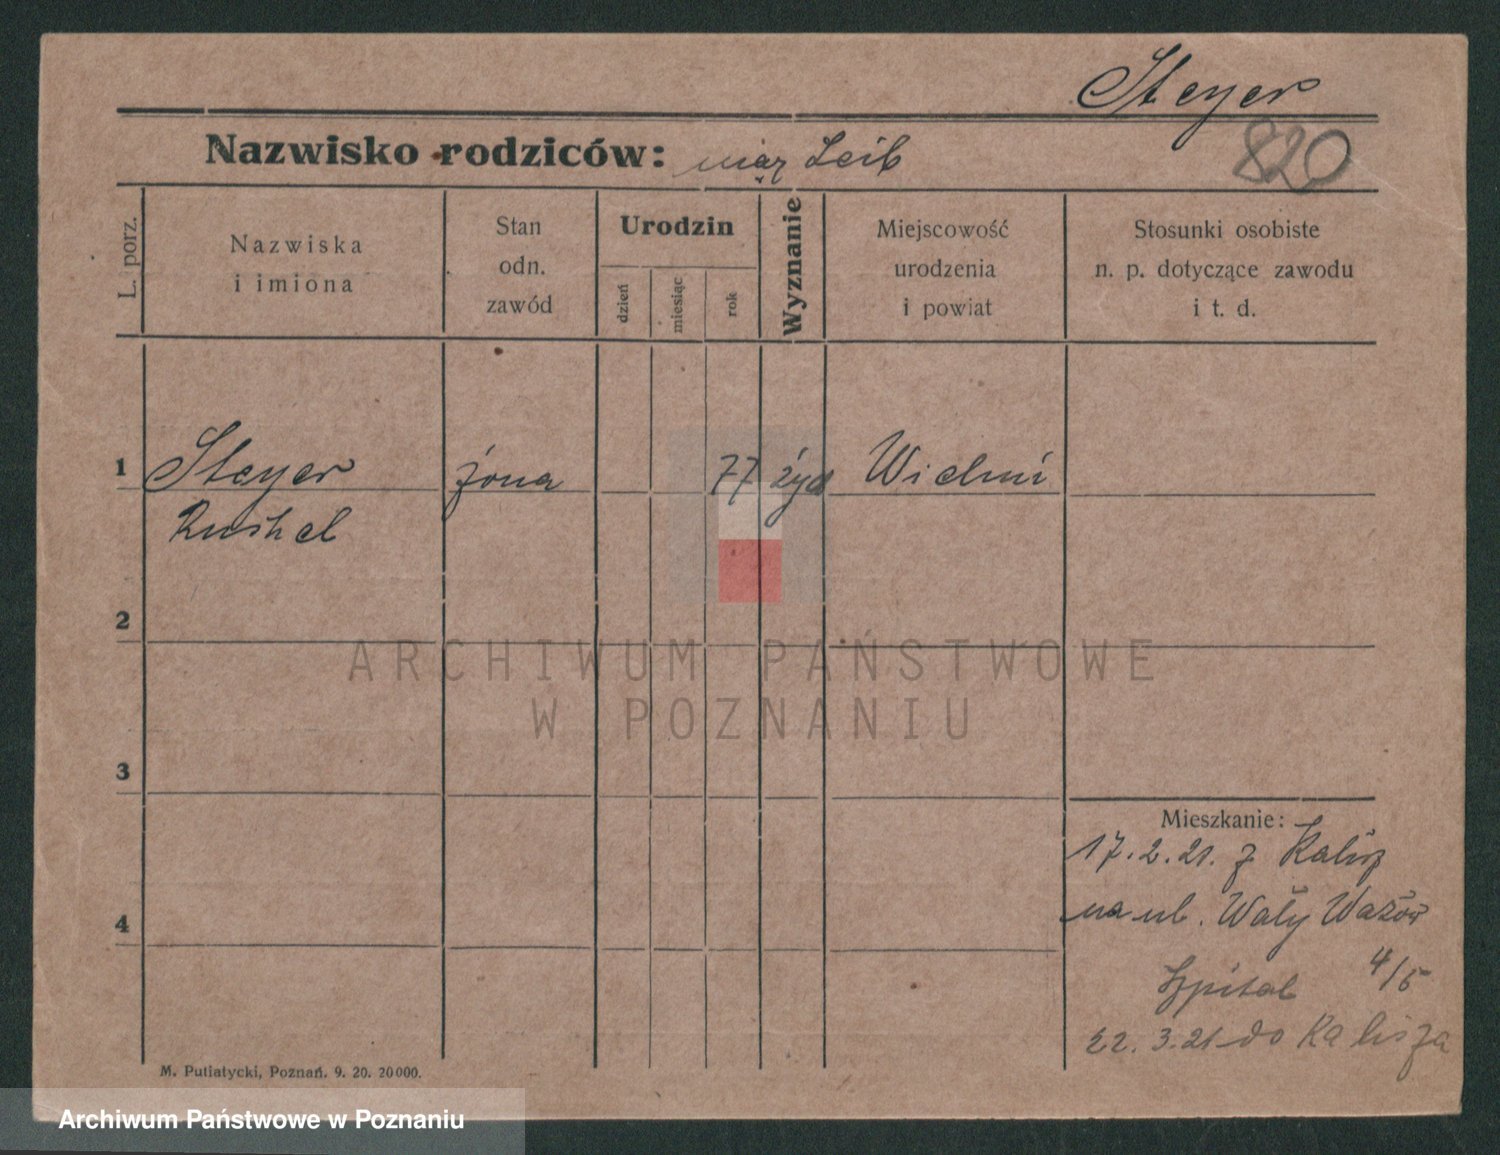 Steyer
Nazwisko rodziców: mąż Leib
820
L. porz.
Nazwiska
i imiona
Stan
odn.
zawód
Urodzin
dzień
miesiąc
rok
Wyznanie
Miejscowość
urodzenia
i powiat
Stosunki osobiste
n. p. dotyczące zawodu
i t. d.
1
Steyer żona 77 żyd
Ruchel
2
ARCHIWUM PAŃSTWOWE
W POZNANIU
3
Mieszkanie:
17.2.21. z Kalisz
na ul. Wały Wazów
4/5
Szpital
22. 3. 21 do Kalisza
4
M. Putiatycki, Poznań. 9. 20. 20000.
Archiwum Państwowe w Poznaniu